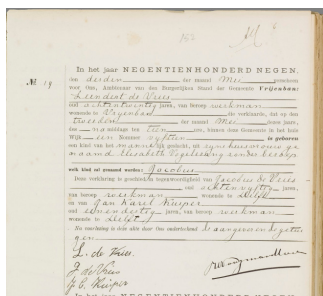 In het jaar NEGENTIENHONDERD NEGEN,
No. 19 den derden der maand Mei verscheen
voor Ons, Ambtenaar van den Burgerlijken Stand der Gemeente Vrijenban:
Leendert de Vries
oud achtentwintig jaren, van beroep werkman
wonende te Vrijenban, die verklaarde, dat op den
tweeden der maand Mei dezes jaars,
des middags ten een ure, binnen deze Gemeente in het huis
Wijk een Nommer vijftien is geboren
een kind van het mannelijk geslacht, uit zijne huisvrouw ge
naamd Elisabeth Vogelesang zonder beroep
welk kind zal genaamd worden: Jacobus
Deze verklaring is geschied in tegenwoordigheid van Jacobus de Vries
oud jaren,
van beroep werkman wonende te Delft
en van Jan Karel Kuiper
oud jaren, van beroep werkman
wonende te Delft
Na voorlezing is deze akte door Ons onderteekend de aangever en de getui
gen.
L. de Vries.
J. de Vries
J C Kuiper